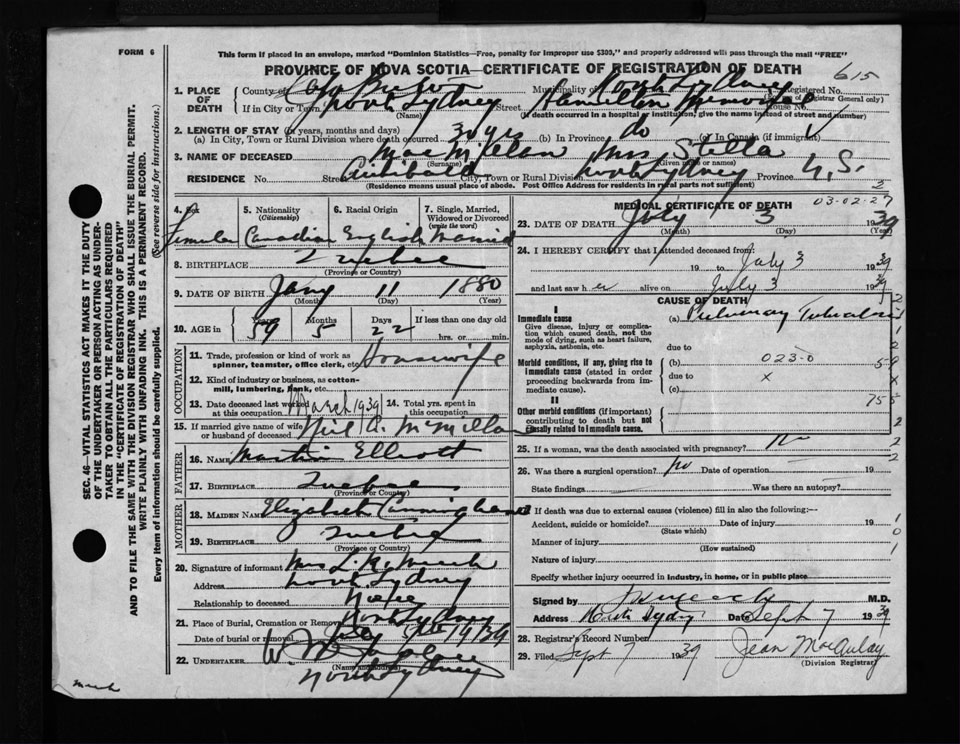 FORM 6
This form if placed in an envelope, marked "Dominion Statistics—Free, penalty for improper use $300," and properly addressed will pass through the mail "FREE"
PROVINCE OF NOVA SCOTIA—CERTIFICATE OF REGISTRATION OF DEATH
615
1. PLACE OF DEATH
County of Cape Breton Municipality of North Sydney Registered No.
(Registrar General only)
If in City or Town North Sydney Street Hamilton Memorial House No.
(Name) (If death occurred in a hospital or institution, give the name instead of street and number)
2. LENGTH OF STAY (In years, months and days)
(a) In City, Town or Rural Division where death occurred 30 yrs (b) In Province do (c) In Canada (if immigrant)
3. NAME OF DECEASED MacMillan Mrs Stella
(Surname) (Given name or names)
RESIDENCE No. Street Archibald City, Town or Rural Division North Sydney Province N.S.
(Residence means usual place of abode. Post Office Address for residents in rural parts not sufficient)
2
03-02-27
4. Sex 5. Nationality (Citizenship) 6. Racial Origin 7. Single, Married, Widowed or Divorced (write the word)
Female Canadian English Married
8. BIRTHPLACE Quebec
(Province or Country)
9. DATE OF BIRTH Jany 11 1880
(Month) (Day) (Year)
10. AGE in Years Months Days If less than one day old
59 5 22 hrs. or min.
OCCUPATION
11. Trade, profession or kind of work as spinner, teamster, office clerk, etc. Housewife
12. Kind of industry or business, as cotton-mill, lumbering, bank, etc.
13. Date deceased last worked at this occupation March 1939 14. Total yrs. spent in this occupation
15. If married give name of wife or husband of deceased Neil A. McMillan
FATHER
16. NAME Martin Elliott
17. BIRTHPLACE Quebec
(Province or Country)
MOTHER
18. MAIDEN NAME Elizabeth
19. BIRTHPLACE Quebec
(Province or Country)
20. Signature of informant Mrs L. R.
Address North Sydney
Relationship to deceased
21. Place of Burial, Cremation or Removal North Sydney
Date of burial or removal July 1939
22. UNDERTAKER W.
(Name and address)
North Sydney
MEDICAL CERTIFICATE OF DEATH
23. DATE OF DEATH July 3 1939
(Month) (Day) (Year)
24. I HEREBY CERTIFY that I attended deceased from:
19 to July 3 1939
and last saw h er alive on July 3 1939
CAUSE OF DEATH
I
Immediate cause (a) Pulmonary
Give disease, injury or complication which caused death, not the mode of dying, such as heart failure, asphyxia, asthenia, etc.
due to
Morbid conditions, if any, giving rise to immediate cause (stated in order proceeding backwards from immediate cause).
(b) 023-0
due to x
(c)
II
Other morbid conditions (if important) contributing to death but not causally related to immediate cause.
25. If a woman, was the death associated with pregnancy? No
26. Was there a surgical operation? No Date of operation 19
State findings Was there an autopsy?
27. If death was due to external causes (violence) fill in also the following:—
Accident, suicide or homicide? Date of injury 19
(State which)
Manner of injury
(How sustained)
Nature of injury
Specify whether injury occurred in industry, in home, or in public place
Signed by M.D.
Address North Sydney Date Sept 7 1939
28. Registrar's Record Number
29. Filed Sept 7 1939 Jean MacAulay
(Division Registrar)
SEC. 46—VITAL STATISTICS ACT MAKES IT THE DUTY
OF THE UNDERTAKER OR PERSON ACTING AS UNDER-
TAKER TO OBTAIN ALL THE PARTICULARS REQUIRED
IN THE "CERTIFICATE OF REGISTRATION OF DEATH"
AND TO FILE THE SAME WITH THE DIVISION REGISTRAR WHO SHALL ISSUE THE BURIAL PERMIT.
WRITE PLAINLY WITH UNFADING INK. THIS IS A PERMANENT RECORD.
Every item of information should be carefully supplied. (See reverse side for instructions.)